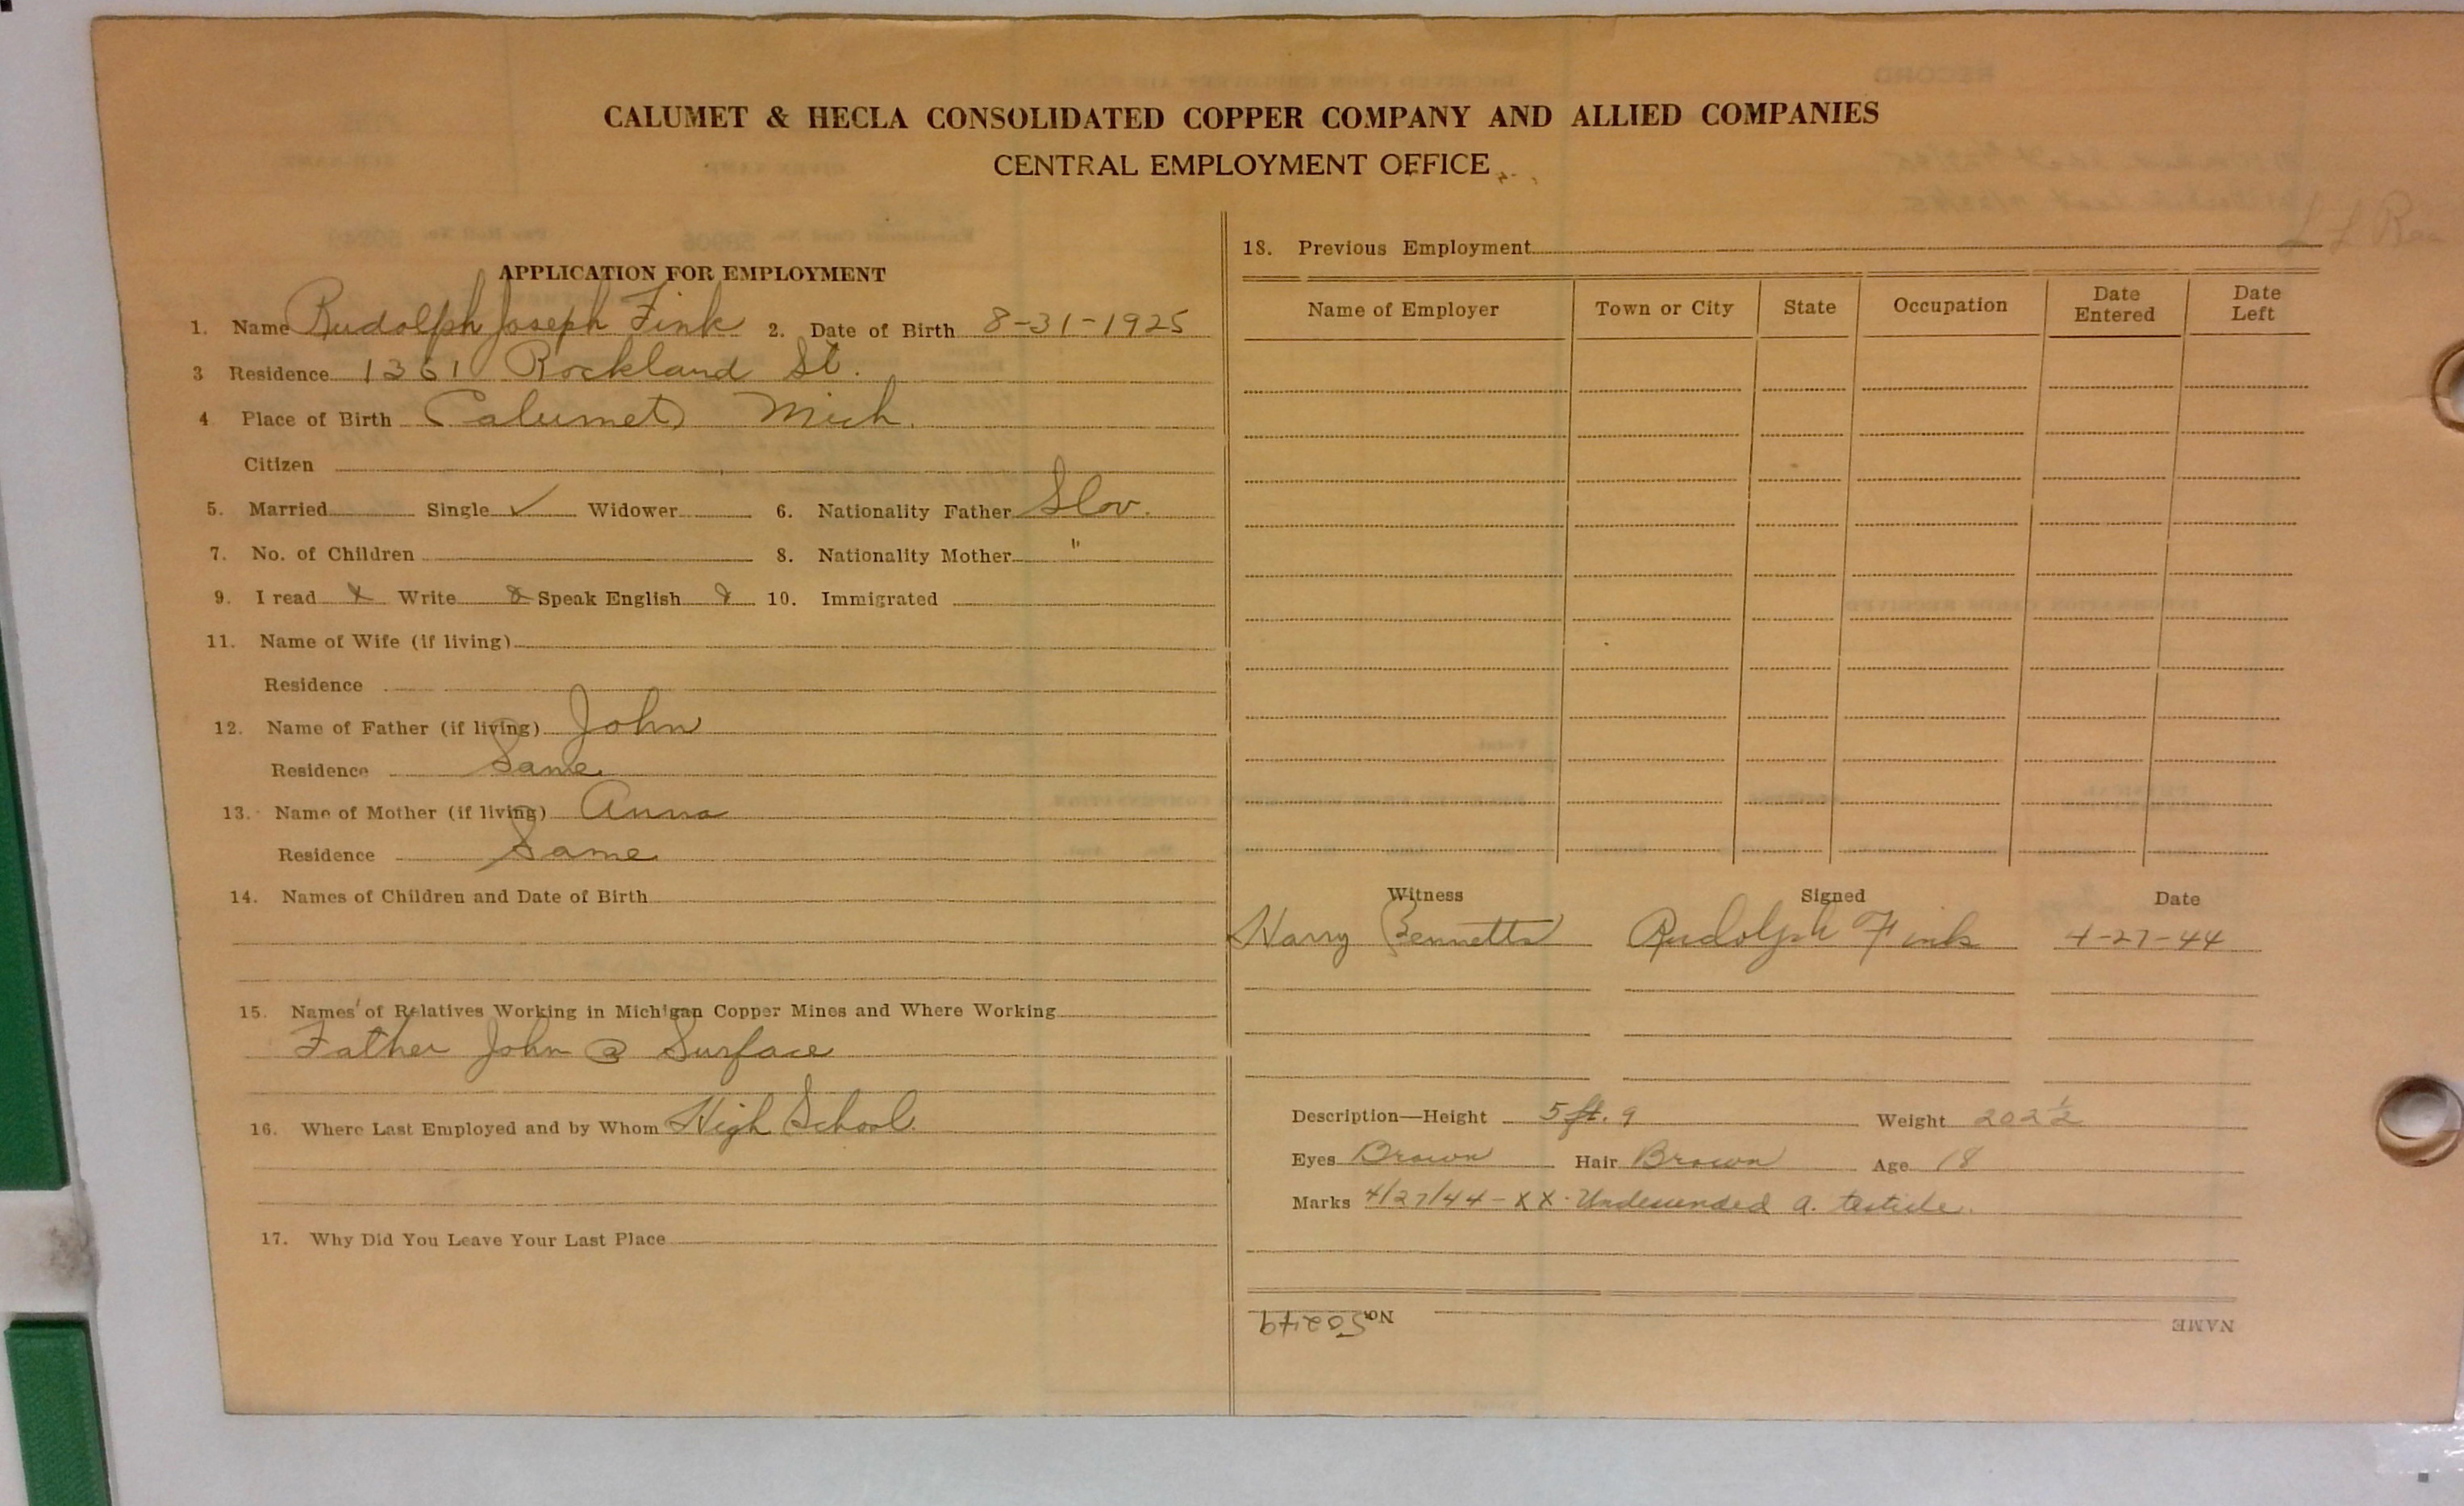 CALUMET & HECLA CONSOLIDATED COPPER COMPANY AND ALLIED COMPANIES
CENTRAL EMPLOYMENT OFFICE
APPLICATION FOR EMPLOYMENT
1. Name Rudolph Joseph Fink 2. Date of Birth 8-31-1925
3 Residence 1361 Rockland St.
4 Place of Birth Calumet Mich.
Citizen
5. Married Single ✓ Widower 6. Nationality Father Slov.
7. No. of Children 8. Nationality Mother "
9. I read X Write X Speak English X 10. Immigrated
11. Name of Wife (if living)
Residence
12. Name of Father (if living) John
Residence Same
13. Name of Mother (if living) Anna
Residence Same
14. Names of Children and Date of Birth
15. Names of Relatives Working in Michigan Copper Mines and Where Working
Father John @ Surface
16. Where Last Employed and by Whom High School
17. Why Did You Leave Your Last Place
18. Previous Employment
Name of Employer Town or City State Occupation Date Entered Date Left
Witness Signed Date
Harry Bennetts Rudolph Fink 4-27-44
Description—Height 5 ft. 9 Weight 202 ½
Eyes Brown Hair Brown Age 18
Marks 4/27/44 - XX - Undescended testicle.
NAME No. 50249